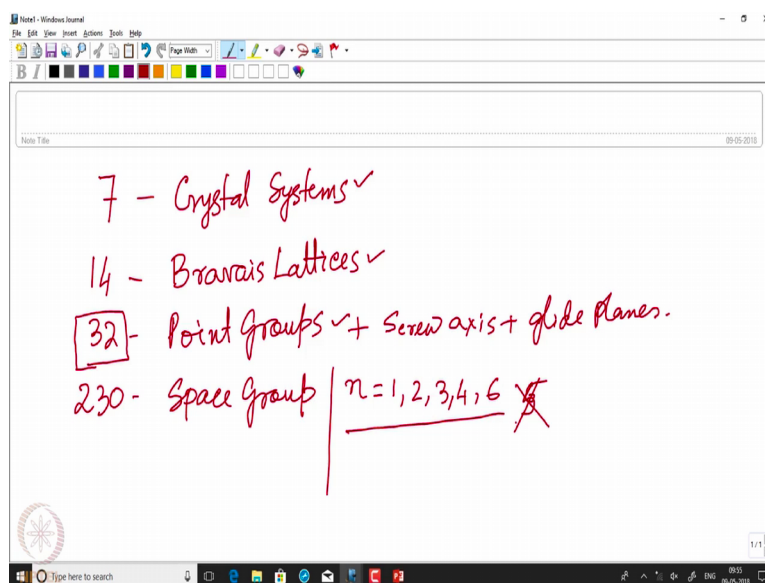 Note1 - Windows Journal
File Edit View Insert Actions Tools Help
Page Width
B I
Note Title
09-05-2018
7 - Crystal Systems ✓
14 - Bravais Lattices ✓
32 - Point Groups ✓ + Screw axis + glide planes.
230 - Space Group | n = 1, 2, 3, 4, 6
1/1
Type here to search
ENG
09:55
09-05-2018